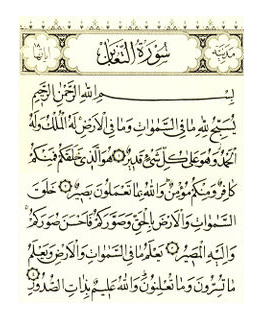 مدنية سورة التغابن آياتها ١٨
بِسْمِ اللهِ الرَّحْمٰنِ الرَّحِيمِ
يُسَبِّحُ لِلّٰهِ مَا فِي السَّمٰوَاتِ وَمَا فِي الْاَرْضِۚ لَهُ الْمُلْكُ وَلَهُ
الْحَمْدُۘ وَهُوَ عَلٰى كُلِّ شَيْءٍ قَدِيرٌ ۝١ هُوَ الَّذِي خَلَقَكُمْ فَمِنْكُمْ
كَافِرٌ وَمِنْكُمْ مُؤْمِنٌۜ وَاللهُ بِمَا تَعْمَلُونَ بَصِيرٌ ۝٢ خَلَقَ
السَّمٰوَاتِ وَالْاَرْضَ بِالْحَقِّ وَصَوَّرَكُمْ فَاَحْسَنَ صُوَرَكُمْۚ
وَاِلَيْهِ الْمَصِيرُ ۝٣ يَعْلَمُ مَا فِي السَّمٰوَاتِ وَالْاَرْضِ وَيَعْلَمُ
مَا تُسِرُّونَ وَمَا تُعْلِنُونَۜ وَاللهُ عَلِيمٌ بِذَاتِ الصُّدُورِ ۝٤